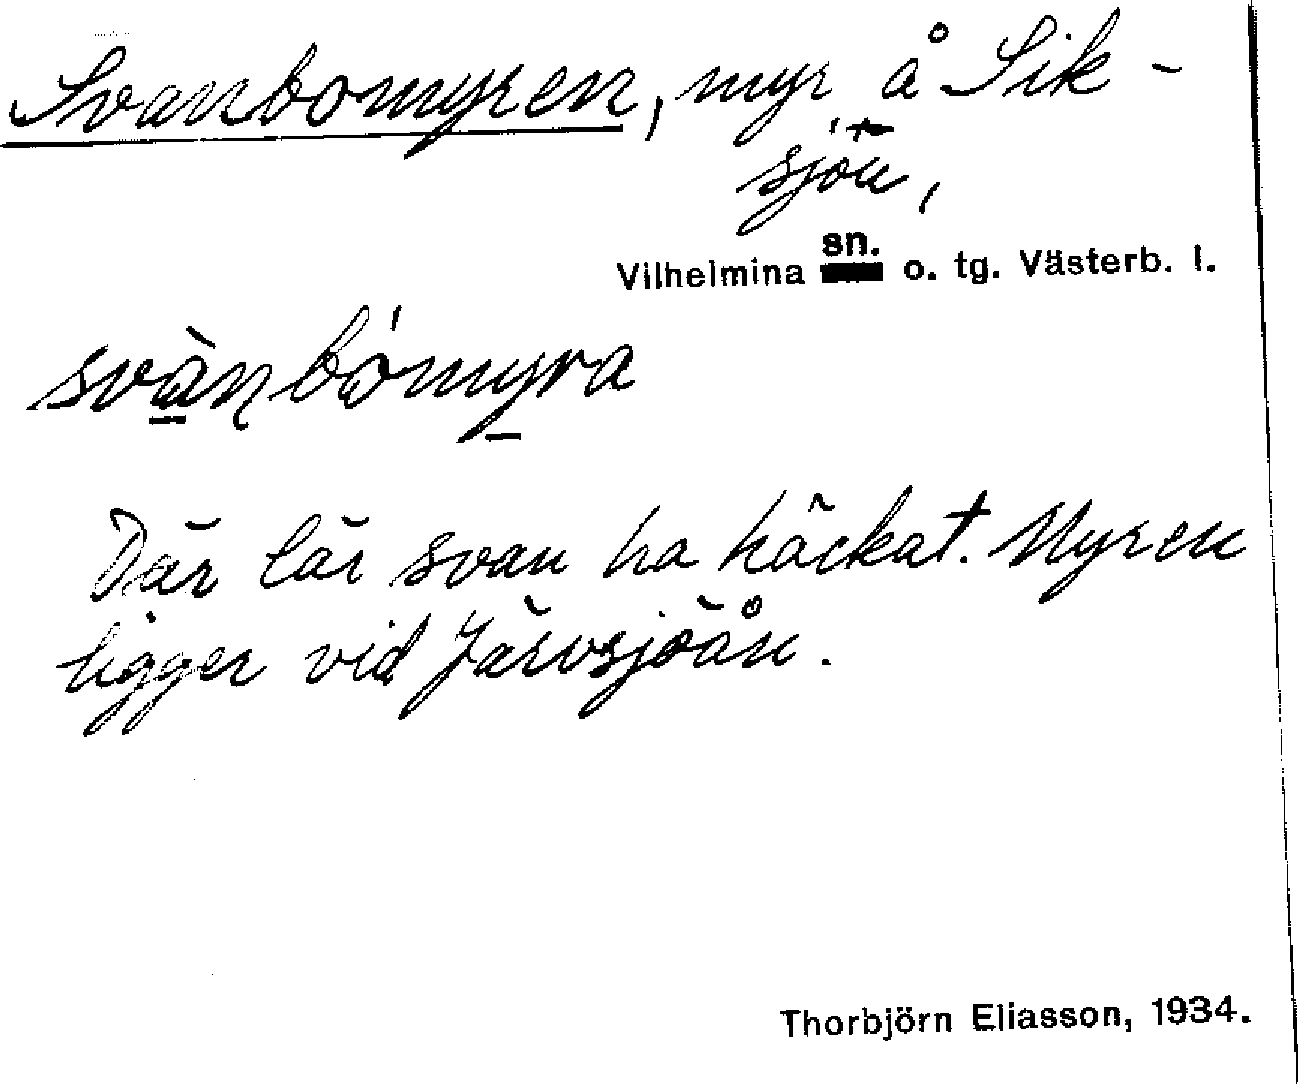 Svanbomyren, myr å Sik-
sjön,
sn.
Vilhelmina o. tg. Västerb. l.
svànbómyra
Där lär svan ha häckat. Myren
ligger vid Järvsjöån.
Thorbjörn Eliasson, 1934.